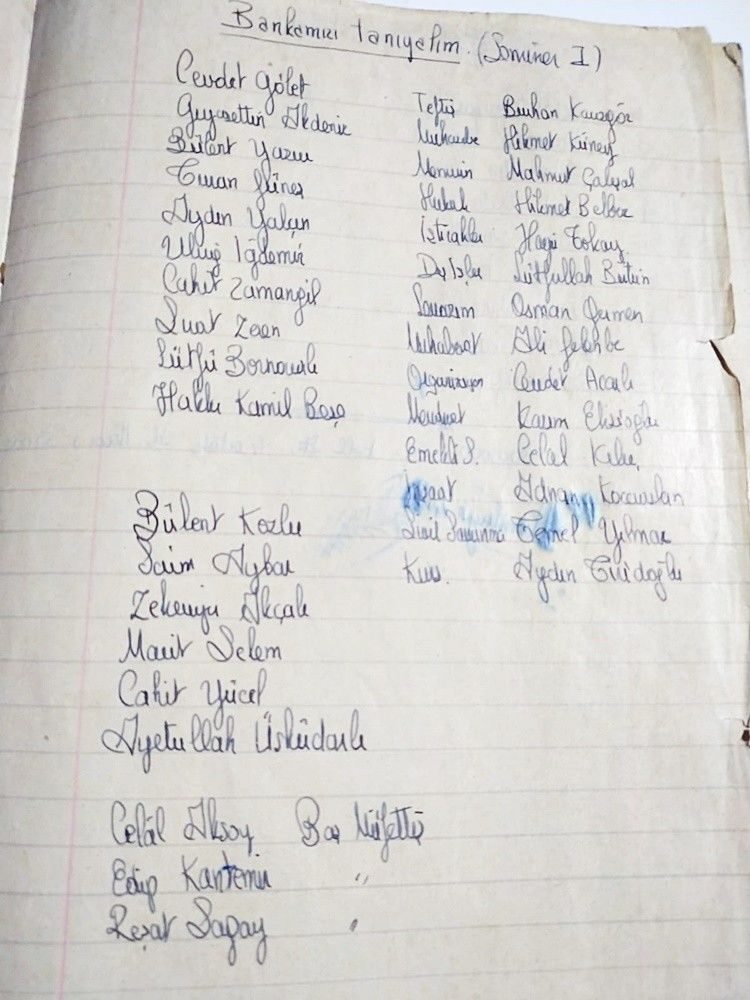 Bankamızı tanıyalım. (Seminer I)
Cevdet Gölet
Gıyasettin Akdeniz
Bülent Yazıcı
Turan Güneş
Aydın Yalçın
Uluğ İğdemir
Cahit Zamangil
Suat
Lütfü Bornovalı
Hakkı Kamil Beşe
Bülent Kozlu
Saim Aybar
Zekeriya Akçalı
Selem
Cahit Yücel
Ayetullah Üsküdarlı
Celâl Aksoy Baş Müfettiş
Edip Kantemir "
Reşat Sagay "
Teftiş Burhan
Muhasebe Hikmet Küney
Mahmut
Hukuk Hikmet Belbez
İştirakler Tokay
Dış İşler Lütfullah Bütün
Osman
Muhaberat Ali
Organizasyon Cevdet Acarlı
Mevduat
Emekli S. Celal Kılıç
İnşaat Adnan Kocaaslan
Sivil Savunma Temel Yılmaz
Kurs. Aydın